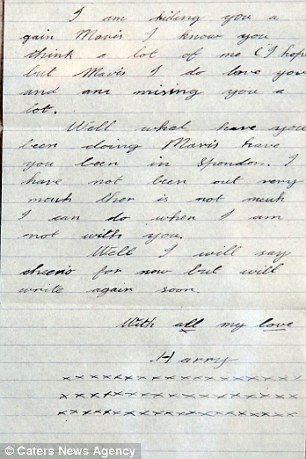 I am kiding you a
gain Mavis I know you
think a lot of me (I hope
but Mavis I do love you
and am missing you a
lot.
Well what have you
been doing Mavis have
you been in Spondon. I
have not been out very
much ther is not much
I can do when I am
not with you.
Well I will say
cheerio for now but will
write again soon.
With all my love
Harry
x x x x x x x x x x x x x x x x x
x x x x x x x x x x x x x x x x x
x x x x x x x x x x x x x x x x x
© Caters News Agency